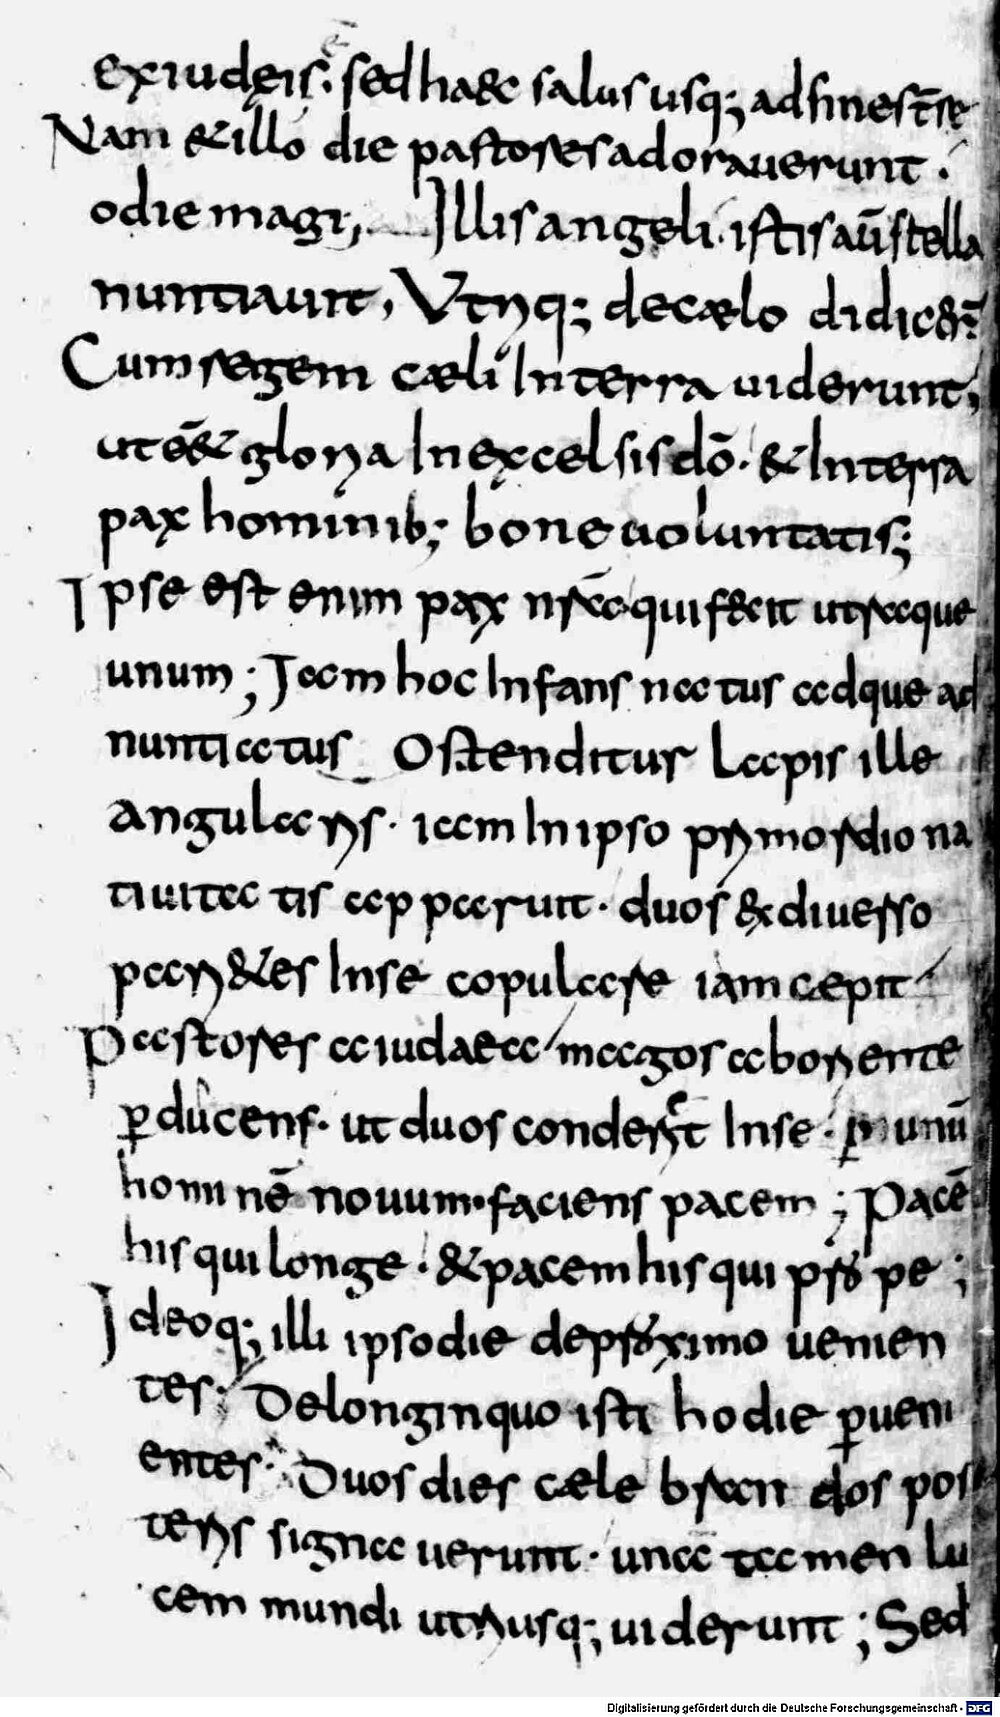 ex iudęis. sed haec salus usq; ad fines t̄re
Nam & illo die pastores adorauerunt.
odie magi; Illis angeli. istis aū stella
nuntiauit, Vtriq; de cælo didicer̄t
Cum regem cæli In terra uiderunt,
ut eēt gloria In excelsis dō. & In terra
pax hominib; bone uoluntatis;
Ipse est enim pax nr̄a. qui fecit utraque
unum; Iam hoc Infans natus adque ad
nuntiatus Ostenditur lapis ille
angularis. iam In ipso primordio na
tiuitatis apparuit. duos ex diuerso
parietes In se copulare iam cæpit
Pastores a iudaea magos ab oriente
ꝑducens. ut duos conderet In se. in unū
hominē nouum. faciens pacem; Pacē
his qui longe. & pacem his qui prope;
Ideoq; illi ipso die de proximo uenien
tes; De longinquo isti hodie ꝑueni
entes. Duos dies cælebrandos pos
teris signauerunt. unā tamen lu
cem mundi utriusq; uiderunt; Sed
Digitalisierung gefördert durch die Deutsche Forschungsgemeinschaft - DFG